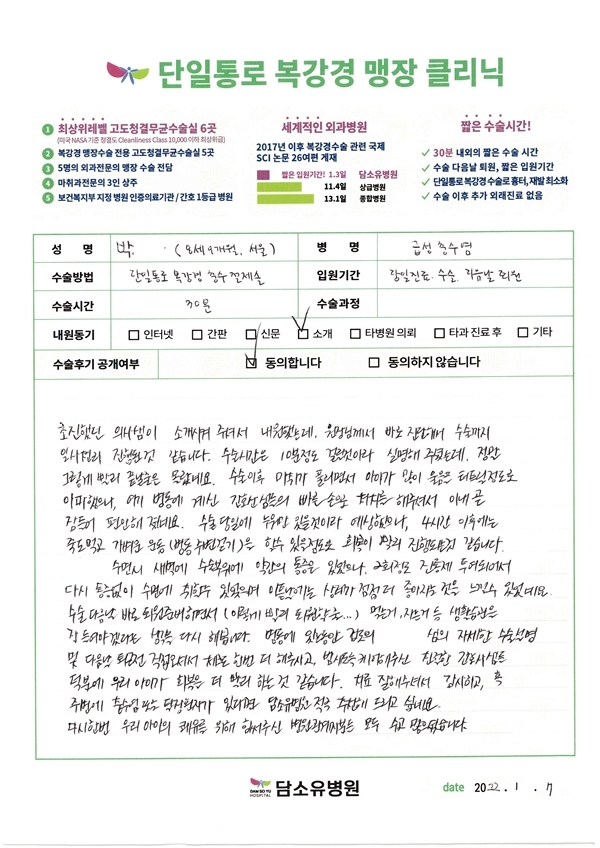 단일통로 복강경 맹장 클리닉
1 최상위레벨 고도청결무균수술실 6곳
(미국 NASA 기준 청결도 Cleanliness Class 10,000 이하 최상위급)
2 복강경 맹장수술 전용 고도청결무균수술실 5곳
3 5명의 외과전문의 맹장 수술 전담
4 마취과전문의 3인 상주
5 보건복지부 지정 병원 인증의료기관 / 간호 1등급 병원
세계적인 외과병원
2017년 이후 복강경수술 관련 국제
SCI 논문 26여편 게재
짧은 입원기간! 1.3일 담소유병원
11.4일 상급병원
13.1일 종합병원
짧은 수술시간!
✓ 30분 내외의 짧은 수술 시간
✓ 수술 다음날 퇴원, 짧은 입원기간
✓ 단일통로 복강경 수술로 흉터, 재발 최소화
✓ 수술 이후 추가 외래진료 없음
성 명 박 (5세 9개월, 서울) 병 명 급성 충수염
수술방법 단일통로 복강경 충수 절제술 입원기간 당일진료. 수술. 다음날 퇴원
수술시간 30분 수술과정
내원동기 인터넷 간판 신문 소개 타병원 의뢰 타과 진료 후 기타
수술후기 공개여부 동의합니다 동의하지 않습니다
초진했던 의사쌤이 소개시켜 주셔서 내원했는데, 원장님께서 바로 진단해서 수술까지
일사천리 진행된것 같습니다. 수술시간은 10분정도 걸릴것이라 설명해 주셨는데, 정말
그렇게 빨리 끝날줄은 몰랐네요. 수술이후 마취가 풀리면서 아이가 많이 울음은 터트릴정도로
아파했으나, 여기 병동에 계신 간호선생님들의 빠른 손길 처치를 해주셔서 이내 곧
잠들어 편안해 졌네요. 수술 당일에 누워만 있을것이라 예상했으나, 4시간 이후에는
죽도먹고 가벼운 운동(병동 주변걷기)은 할수 있을정도로 회복이 빨리 진행되는것 같습니다.
수면시 새벽에 수술부위에 약간의 통증은 있었으나, 2회정도 진통제 투여되어서
다시 통증없이 수면에 취할수 있었으며 이튿날에는 상태가 점점 더 좋아지는 것을 느낄수 있었네요.
수술 다음날 바로 퇴원준비하면서 (이렇게 빨리 퇴원할줄...) 먹는거, 자는거 등 생활습관은
잘 들여야겠다는 생각을 다시 해봅니다. 병동에 있는동안 님의 자세한 수술설명
및 다음날 퇴원전 직접오셔서 체크도 한번 더 해주시고, 병실에 계신 친절한 간호사쌤들
덕분에 우리 아이가 회복은 더 빨리 하는 것 같습니다. 치료 잘해주셔서 감사하고, 혹
주변에 충수염 또는 탈장환자가 있다면 담소유병원 적극 추천해 드리고 싶네요.
다시한번 우리 아이의 쾌유를 위해 힘써주신 병원관계자분들 모두 수고 많으셨습니다.
DAM SO YU
HOSPITAL
담소유병원
date 2022. 1. 7